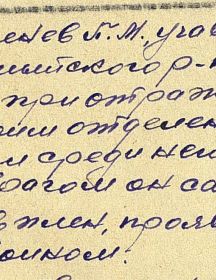 енев П.М. учас
шимского р-н
при отраж
ким отделен
л среди нем
врагом он са
в плен, прояв
воином.